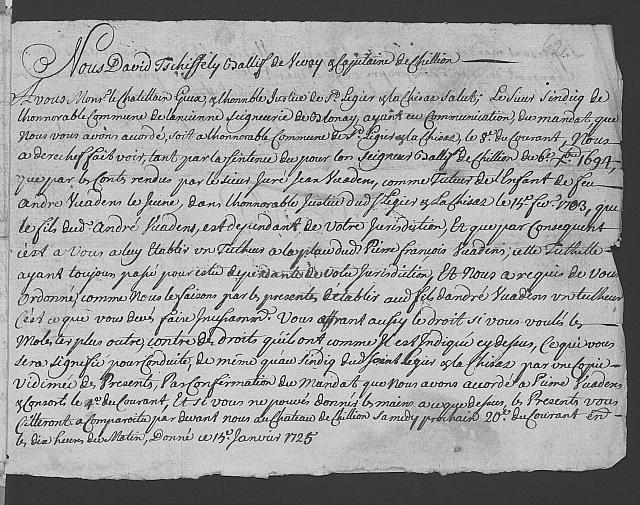 Nous David Tschiffely Ballif de Vevay & Capitaine de Chillion
A vous Monsr. le Chatellain & lhonnble Justice de St. Legier & la Chisaz salut; Le Sieur Sindiq de
Lhonnorable Commune de Lancienne Seigneurie de Blonay, ayant eu Communication, du mandat que
Nous vous avons acordé, soit a lhonnorable Commune de St. Legier & la Chisaz, le 8e. du Courant, Nous
a derechef fait voir, tant par la Sentence du pour lors Seigneur Ballif de Chillion du 6e. 1694,
que par les Conts rendus par le sieur Juré Jean Vuadens, comme Tuteur de l'Enfant de feu
andré Vuadens le Jeune, dans lhonnorable Justice du St. Legier & la Chisaz le 15e. fevr. 1703, que
le fils dud. André Vuadens, est dependant de vôtre Jurisdistion, Et que par Consequent
c'est a Vous a luy Etablir un Tutheur a la place dud. Pierre françois Vuadens, cette Tuthelle
ayant toujours passé pour estre dépendante de Votre Jurisdiction, Et Nous a requis de vous
ordonné, comme Nous le faisons par les presentes d'établir aud. fils d'andré Vuadens un tutheur
C'est a que vous devez faire Incessamt. Vous offrant aussy le droit si vous voulés les
Molester plus outre, contre des droits qu'il ont comme Il est Indiqué cy dessus, Ce qui vous
sera signifié pour Conduite, de même qu'au Sindiq dud. Saint Legier & la Chisaz par une Copie
Vidimée des Presents, Par Confirmation du Mandat que Nous avons accordé a Pierre Vuadens
& Consorts le 4e. du Courant, Et si vous ne pouvés donner les mains a ce que dessus, les Presents vous
Citteront a Comparoitre par devant nous au Château de Chillion Samedy prochain 20e. du Courant
les dix heures du Matin, Donné ce 15e. Janvier 1725